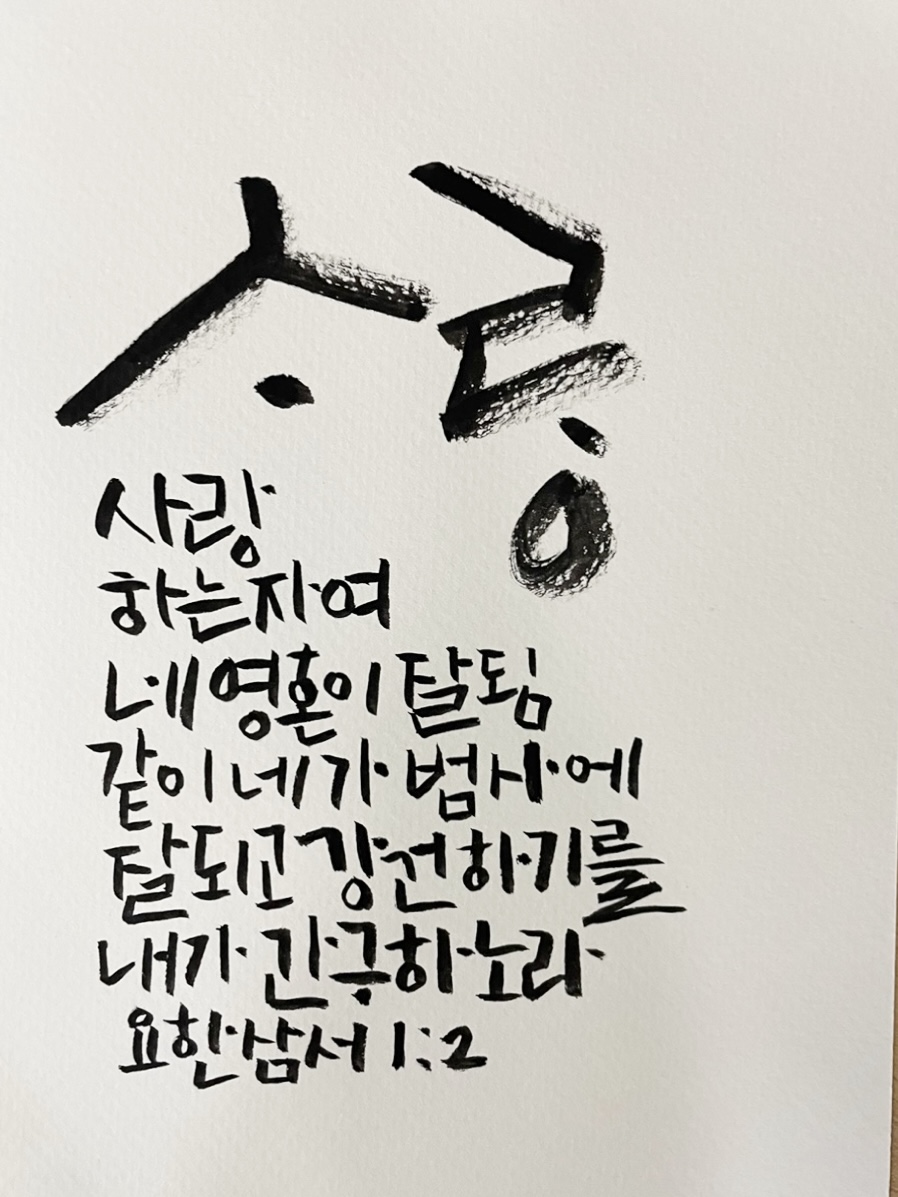 사랑
사랑
하는자여
네 영혼이 잘됨
같이 네가 범사에
잘되고 강건하기를
내가 간구하노라
요한삼서 1:2